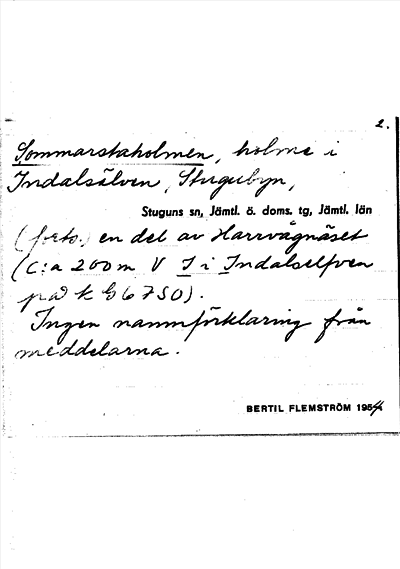 2.
Sommarstaholmen, holme i
Indalsälven, Stugubyn,
Stuguns sn, Jämtl. ö. doms. tg, Jämtl. län
(forts.) en del av Harrvågnäset
(c:a 200 m V I i Indalselfven
på k G 6750).
Ingen namnförklaring från
meddelarna.
BERTIL FLEMSTRÖM 1954